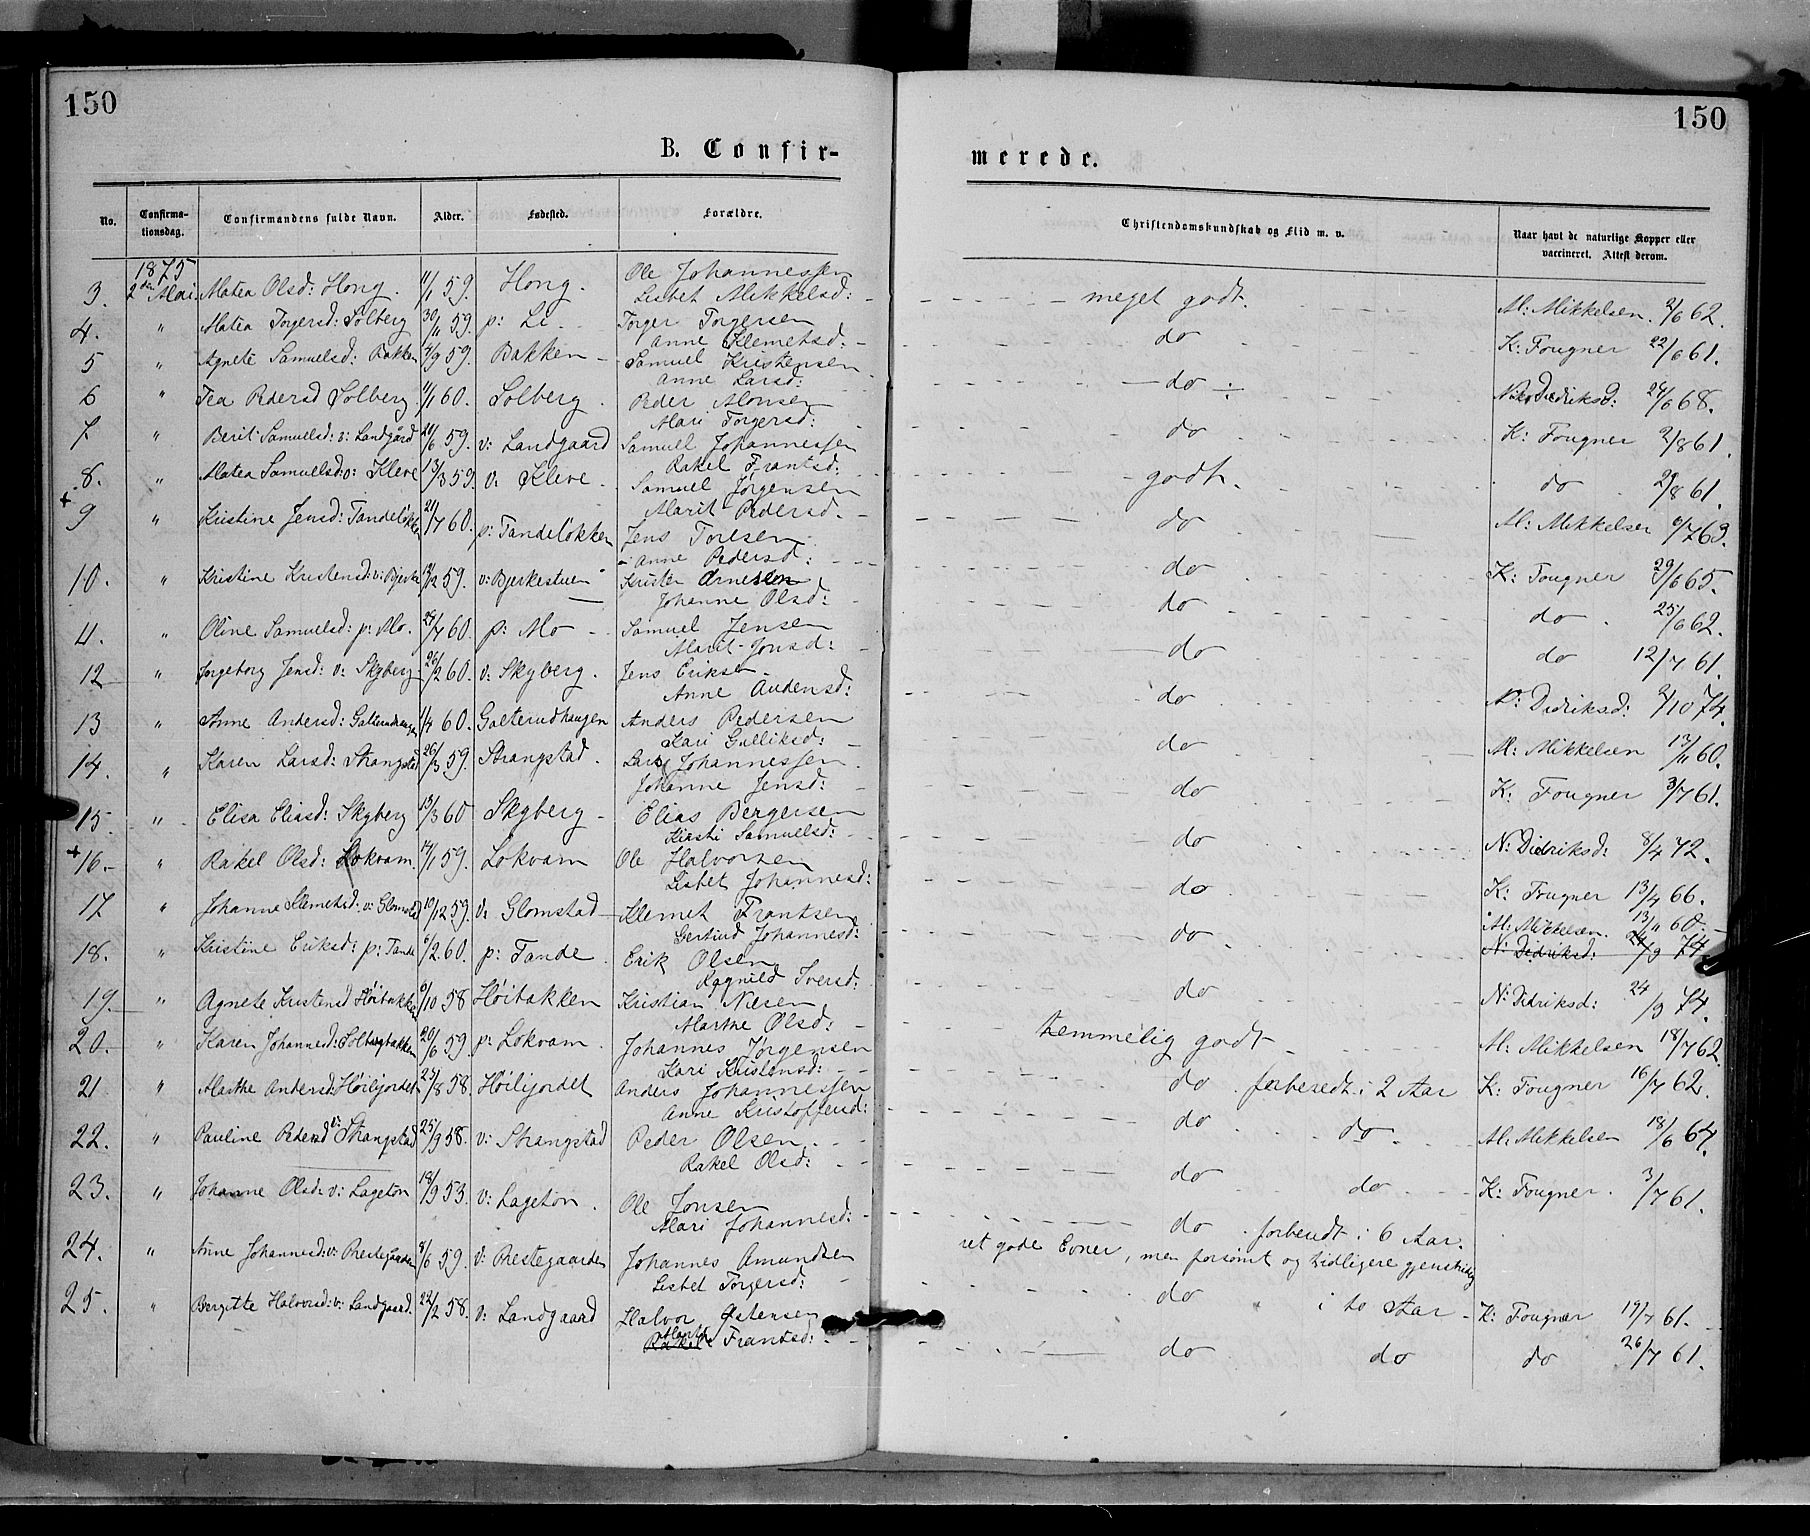 150
150
B. Confir-
merede.
No.
Confirma-
tionsdag.
Confirmandens fulde Navn.
Alder.
Fødested.
Forældre.
Christendomskundskab og Flid m. v.
Naar havt de naturlige Kopper eller
vaccineret. Attest derom.
1875
3. 2den Mai. Matea Olsd: Hong. 11/1 59. Hong. Ole Johannessen
Lisbet Mikkelsd: meget godt. M: Mikkelsen. 2/6 62.
4. " Matea Torgersd: Solberg 30/11 59. p: Li. Torger Torgersen
Anne Klemetsd: do K: Fougner 22/6 61.
5 " Agnete Samuelsd: Bakken 4/9 59. Bakken Samuel Kristensen
Anne Larsd: do N: Didriksd: 24/6 68.
6 " Tea Pedersd Solberg 11/1 60. Solberg. Peder Monsen
Mari Torgersd: do K: Fougner 2/8 61.
7 " Berit Samuelsd: v: Landgård 20/6 59. v: Landgaard Samuel Johannessen
Rakel Frantsd: godt. do 2/8 61.
8. " Matea Samuelsd: v: Kleve 13/3 59. v. Kleve. Samuel Jørgensen
Marit Pedersd. do M: Mikkelsen 6/7 63.
+ 9 " Kristine Jensd: Tandeløkke 21/7 60. p: Tandeløkken Jens Toresen
Anne Pedersd: do K: Fougner 29/6 65.
10. " Kristine Kristensd: v: Bjerke 12/2 59. v: Bjerkestuen Kristen Arnesen
Johanne Olsd: do do 25/6 62.
11. " Oline Samuelsd: p: Mo. 24/7 60. p: Mo Samuel Jensen
Marit Jonsd: do do 12/7 61.
12 " Ingeborg Jensd: v: Skyberg 26/2 60. v: Skyberg. Jens Eriksen
Anne Audensd: do N: Didriksd: 2/10 74.
13 " Anne Andersd: Galterudhaugen 1/4 60. Galterudhaugen Anders Pedersen
Kari Gulliksd: do M: Mikkelsen 13/11 60.
14. " Karen Larsd: Strangstad 26/3 59. Strangstad. Lars Johannessen
Johanne Jensd: do K: Fougner 3/7 61.
15. " Elisa Eliasd: Skyberg 13/3 60 Skyberg Elias Bergersen
Kirsti Samuelsd: do N: Didriksd: 8/4 72.
+ 16. " Rakel Olsd: Lokvam 17/1 59. Lokvam Ole Halvorsen
Lisbet Johannesd: do K: Fougner 13/4 66.
17 " Johanne Klemetsd: v: Glomstad 10/12 59. v: Glomstad Klemet Frantsen
Gertrud Johannesd: do M: Mikkelsen. 13/11 60.
N: Didriksd: 24/9 74.
18. " Kristine Eriksd: p: Tande 6/2 60. p: Tande. Erik Olsen
Ragnild Iversd: do N: Didriksd: 24/9 74.
19. " Agnete Kristensd Høibakken 6/10 58 Høibakken Kristian Nesen
Marthe Olsd: temmelig godt M: Mikkelsen 18/7 62
20. " Karen Johannesd: Solbergbakken 20/6 59 p: Lokvam. Johannes Jørgensen
Kari Kristensd: do forberedt i 2 Aar K: Fougner 16/7 62.
21 " Marthe Andersd: Høiljordet 25/8 58. Høiljordet Anders Johannessen
Anne Kristoffersd: do do. M: Mikkelsen 18/6 64.
22. " Pauline Pedersd v: Strangstad 25/9 58. v: Strangstad Peder Olsen
Rakel Olsd: do do K: Fougner. 3/7 61.
23. " Johanne Olsd: v: Lageton 18/9 53. v: Lageton. Ole Jonsen
Mari Johannesd: do forberedt i 6 Aar.
ret gode Evner, men forsømt og tidligere gjenstridig
24. " Anne Johannesd: v: Prestegaarden 8/6 59. v: Prestegaarden Johannes Amundsen
Lisbet Torgersd: do i to Aar K: Fougner 19/7 61.
25. " Bergitte Halvorsd: v: Landgaard. 22/2 58. v: Landgaard Halvor Østensen
Marthe
Rakel Frantsd: do do do 26/7 61.